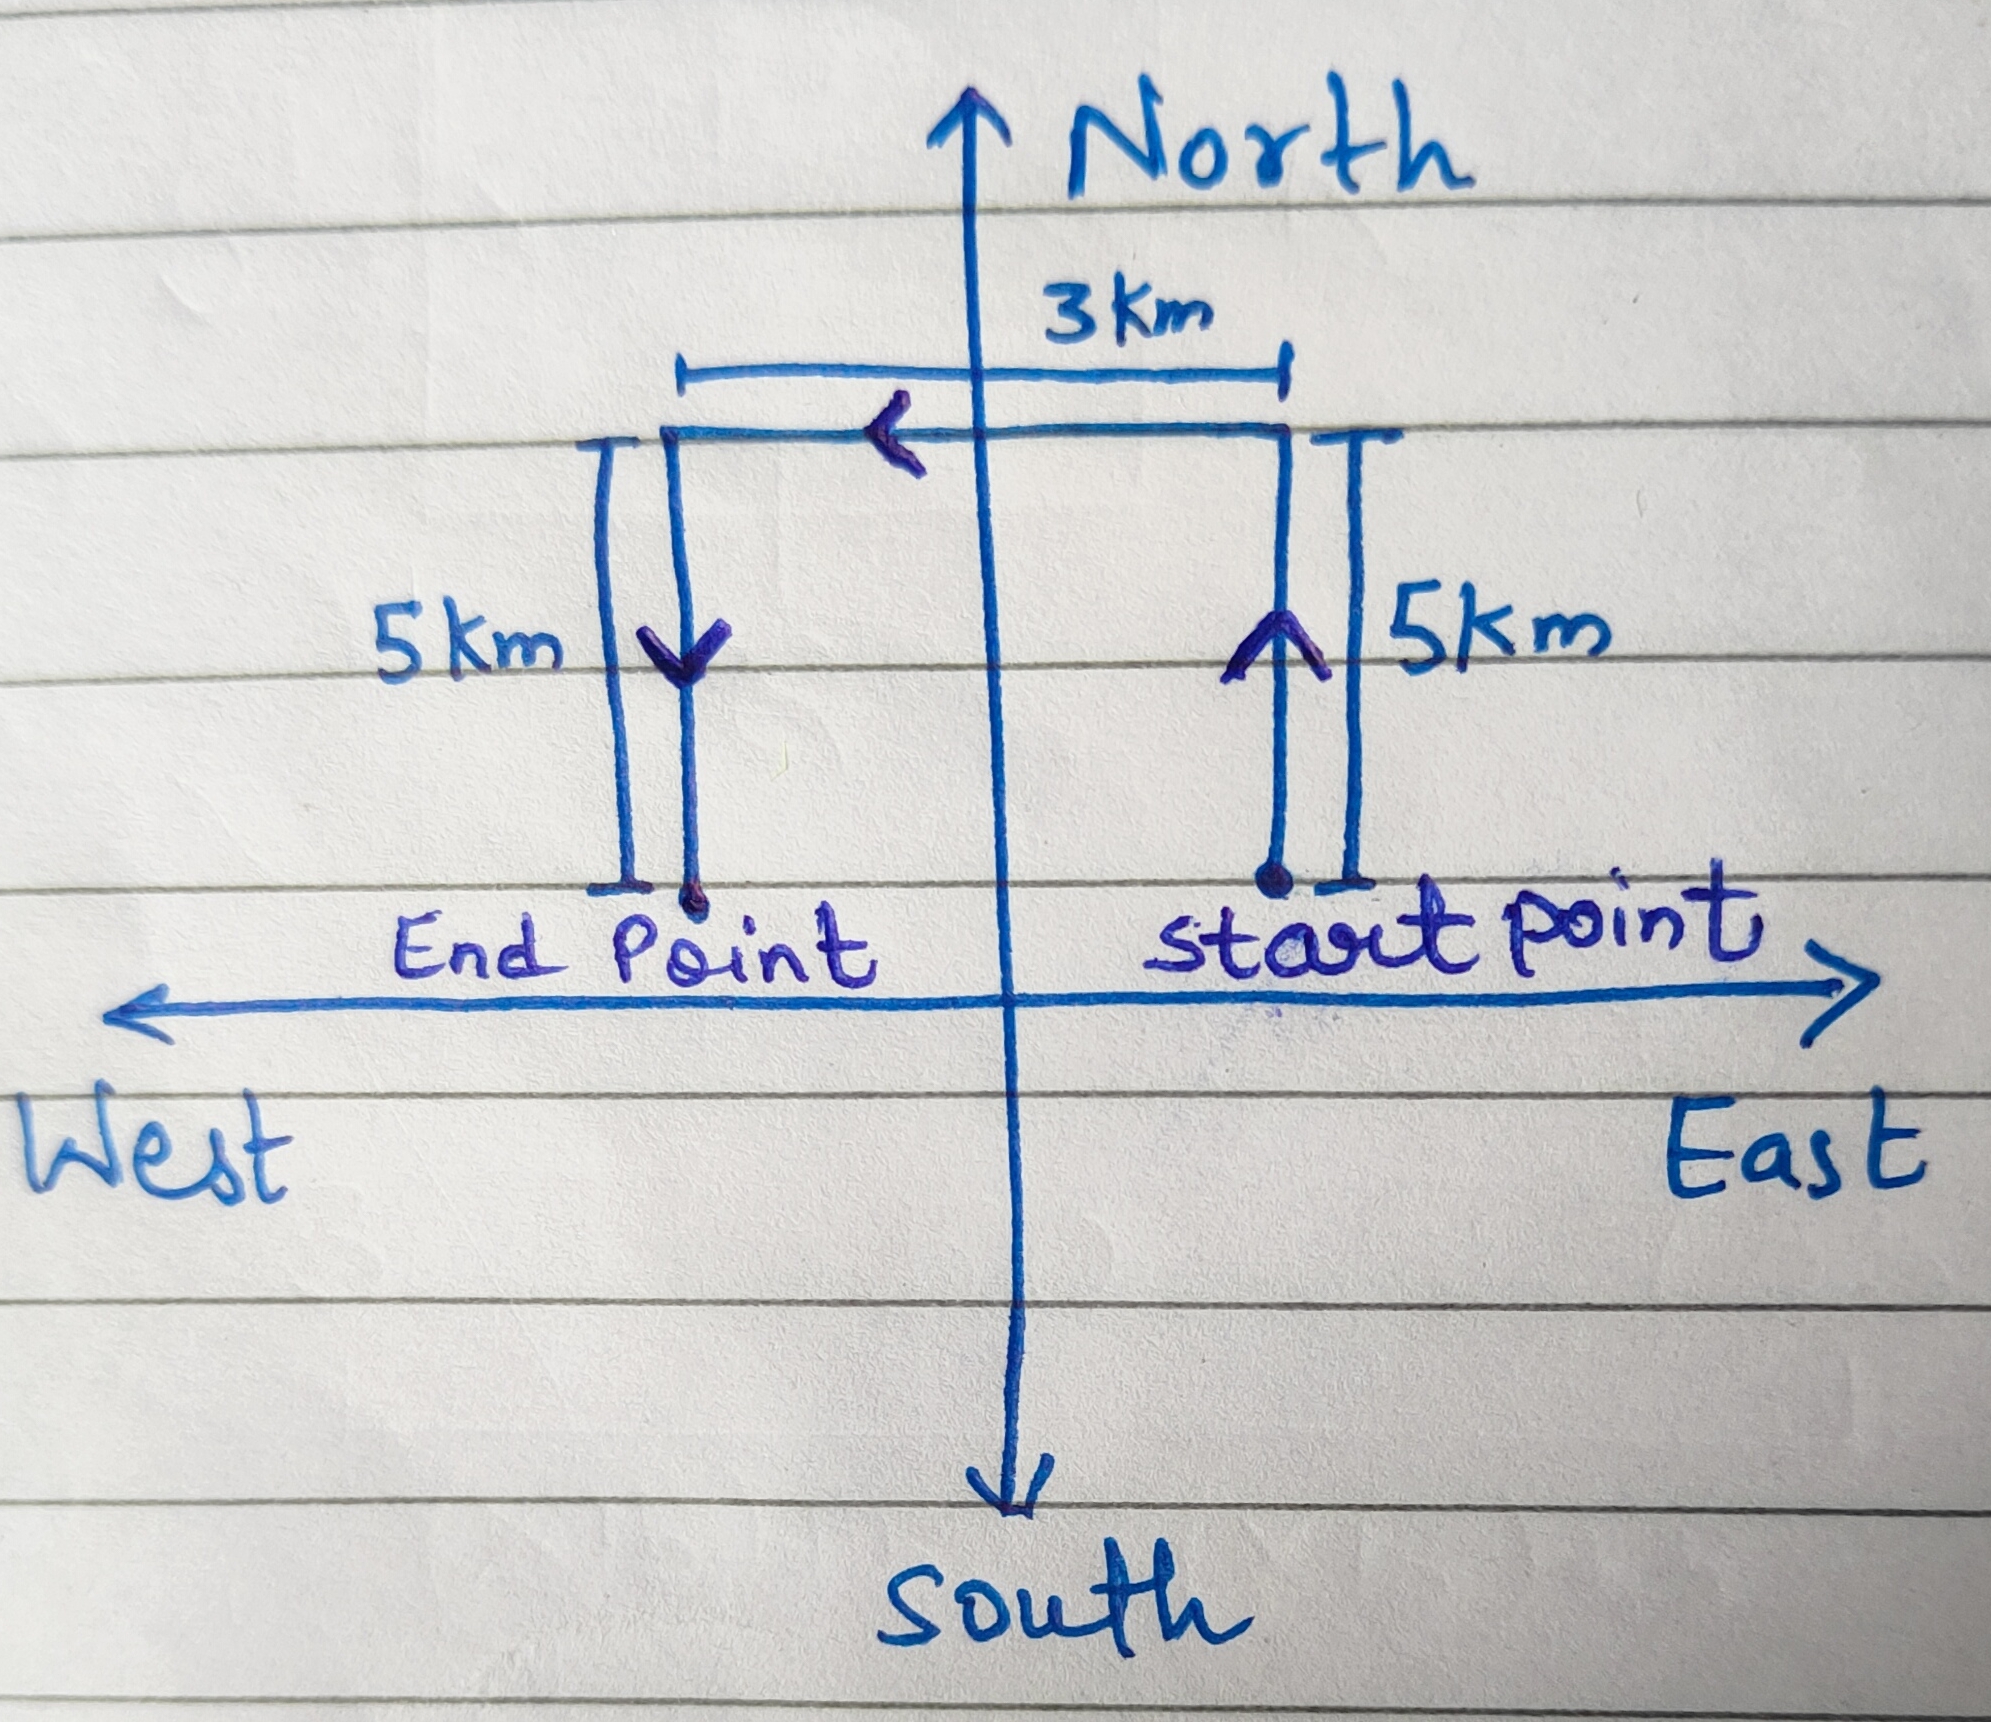 North
3km
5km
5km
End Point
start point
West
East
South